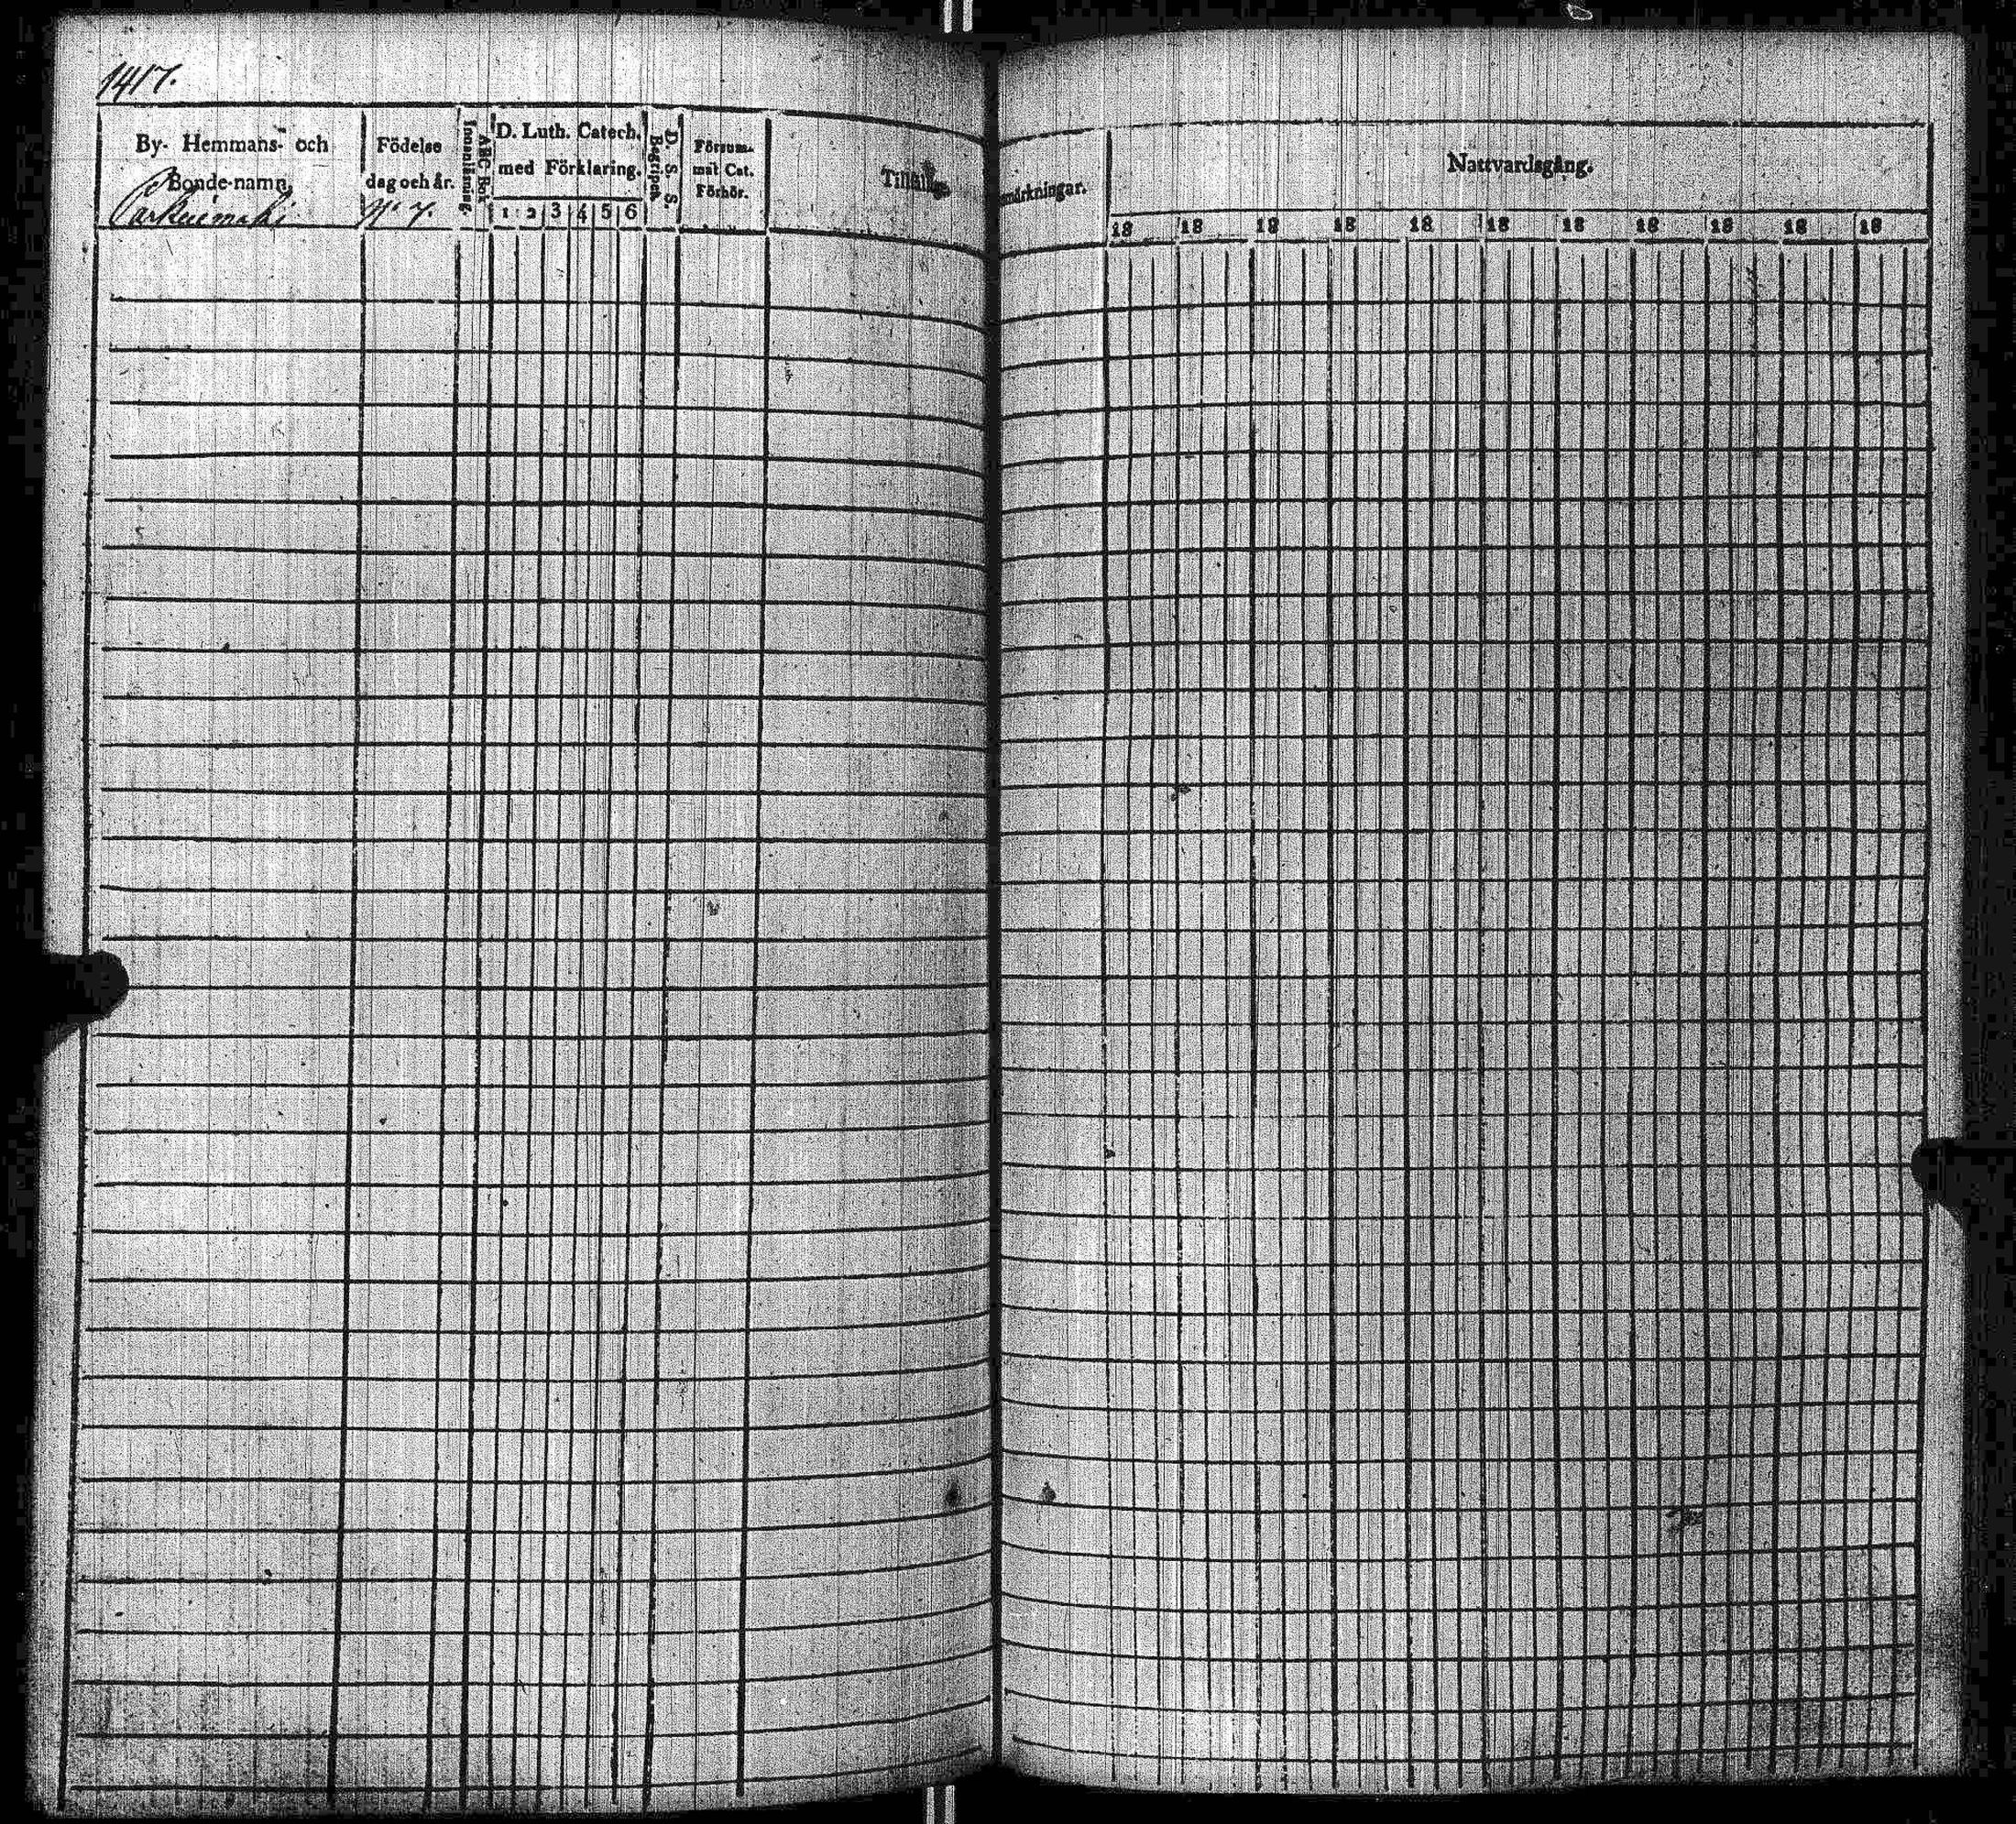 1417.
By- Hemmans- och
Bonde-namn
Födelse
dag och år.
N:o 7.
Innanläsning.
ABC Bok
D. Luth. Catech.
med Förklaring.
1 2 3 4 5 6
Begripet.
D. S. S.
Försum-
mat Cat.
Förhör.
märkningar.
Nattvardsgång.
18 18 18 18 18 18 18 18 18 18 18